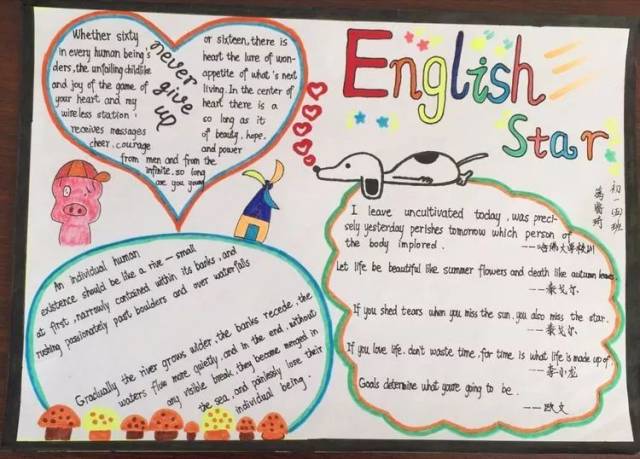 English
Star
初一四班
Whether sixty
in every human being's
ders, the unfailing childlike
and joy of the game of
your heart and my
wireless station:
receives messages
cheer, courage
from men and from the
infinite, so long
are you young
never
give
up
or sixteen, there is
heart the lure of won-
appetite of what's next
living. In the center of
heart there is a
so long as it
of beauty, hope.
and power
An individual human
existence should be like a rive — small
at first, narrowly contained within its banks, and
rushing passionately past boulders and over waterfalls
Gradually the river grows wilder, the banks recede, the
waters flow more quietly, and in the end, without
any visible break, they become merged in
the sea, and painlessly lose their
individual being.
I leave uncultivated today, was preci-
sely yesterday perishes tomorrow which person of
the body implored.
---哈佛大学校训
Let life be beautiful like summer flowers and death like autumn leaves.
---泰戈尔
If you shed tears when you miss the sun, you also miss the star.
---泰戈尔
If you love life, don't waste time, for time is what life is made up of.
---李小龙
Goals determine what you're going to be.
---欧文